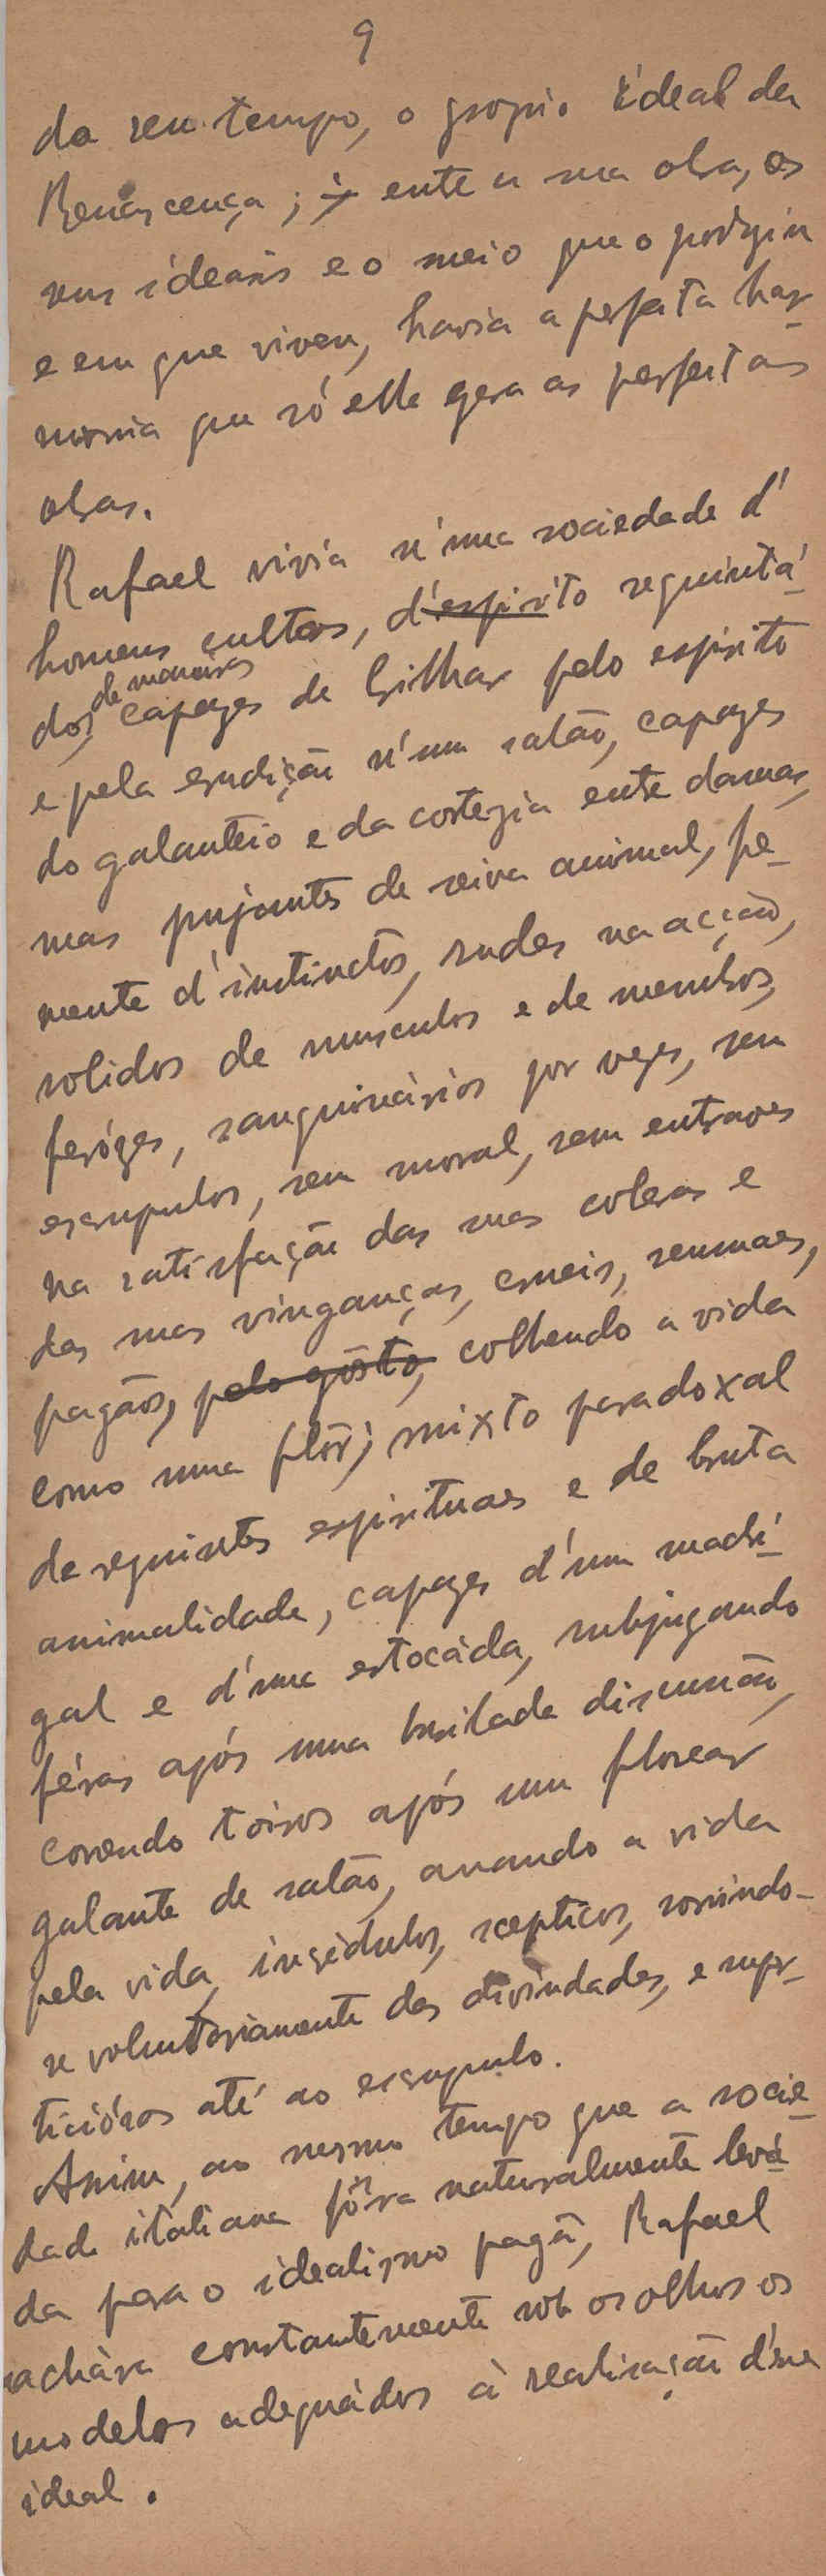 9
do seu tempo, o proprio idéal da
Renascença; e entre a sua obra, os
seus idéaes e o meio que o produziu
e em que viveu, havia a perfeita har-
monia que só ella gera as perfeitas
obras.
Rafael vivia n'uma sociedade d'
homens cultos, d'espirito requintá-
dos de maneiras, capazes de brilhar pelo espirito
e pela erudição n'um salão, capazes
do galanteio e da cortezia entre damas,
mas pujantes de seiva animal, fe-
mente d'instinctos, rudes na acção,
solidos de musculos e de membros,
ferózes, sanguinários por vezes, sem
escrupulos, sem moral, sem entraves
na satisfação das suas coleras e
das suas vinganças, crueis, sensuaes,
pagãos, pelo gôsto, colhendo a vida
como uma flôr; mixto paradoxal
de requintes espirituaes e de bruta
animalidade, capazes d'um madri-
gal e d'uma estocáda, subjugando
féras após uma burilada discussão,
correndo toiros após um florear
galante de salão, amando a vida
pela vida, incrédulos, scepticos, sorrindo-
se voluntariamente das divindades, e supers-
ticiósos até ao escrupulo.
Assim, ao mesmo tempo que a socie-
dade italiana fôra naturalmente levá-
da para o idealismo pagã, Rafael
achára constantemente sob os olhos os
modelos adequádos à realisação d'esse
ideal.